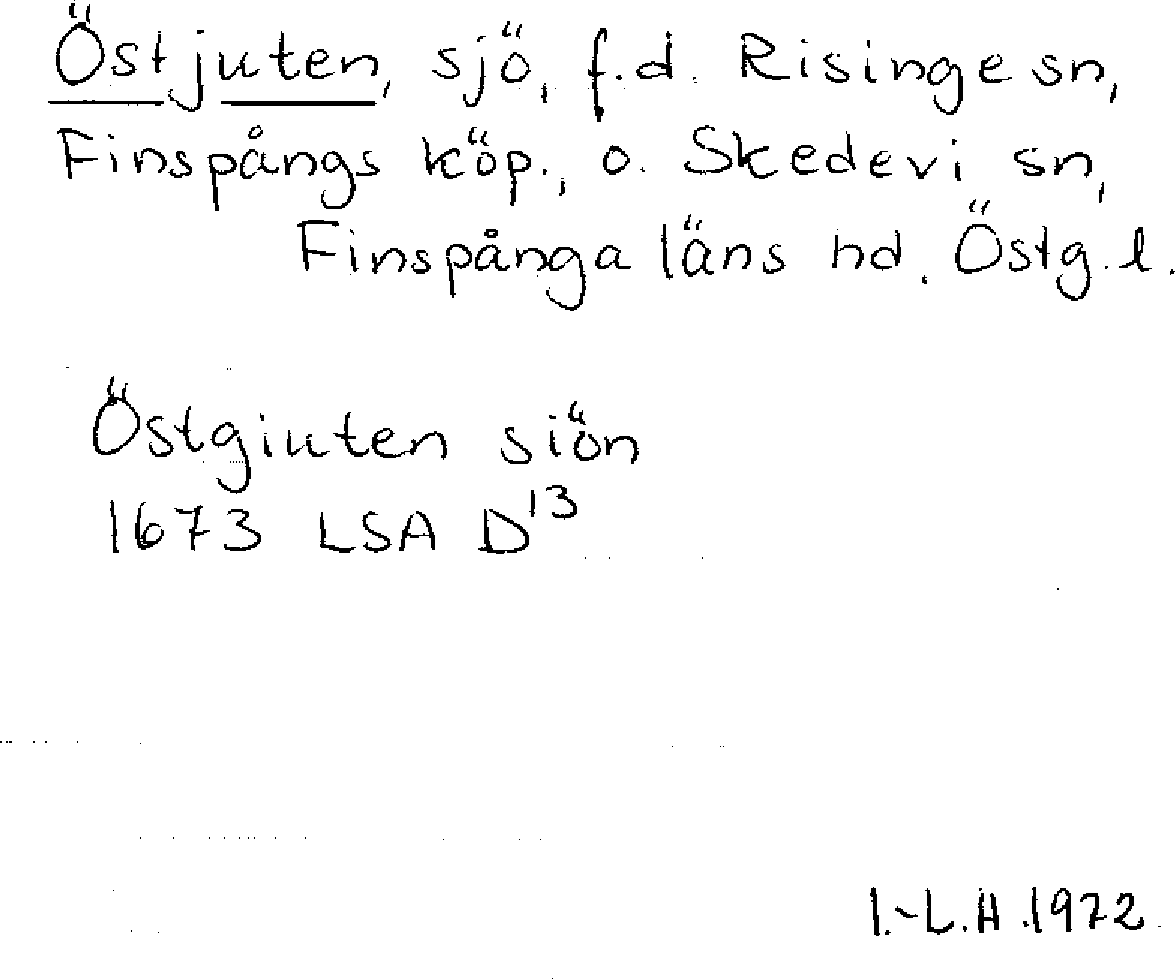 Östjuten, sjö, f.d. Risinge sn,
Finspångs köp., o. Skedevi sn,
Finspånga läns hd. Östg.l.
Östgiuten siön
1673 LSA D13
I.-L.H.1972